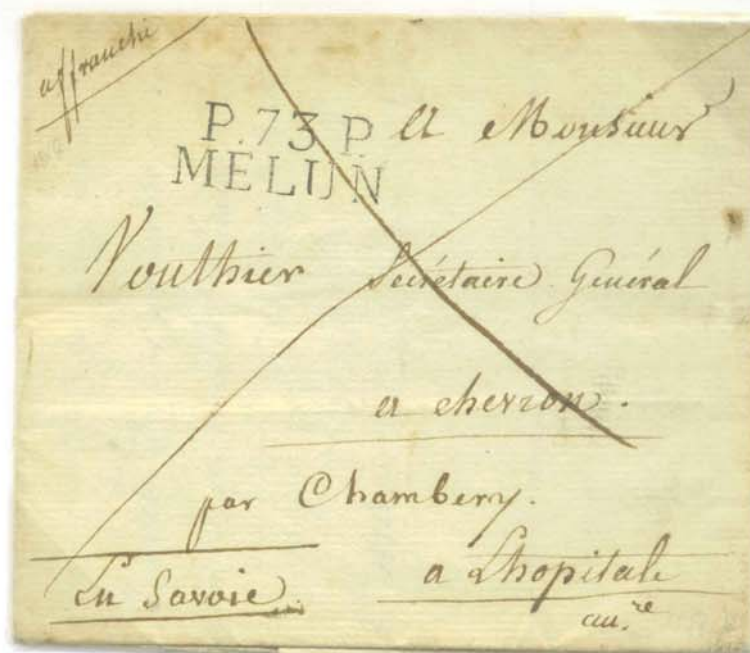 affranchi
P.73.P.
MELUN
A Monsieur
Vouthier Secrétaire Général
a chevron.
par Chambery.
En Savoie
a Lhopitale